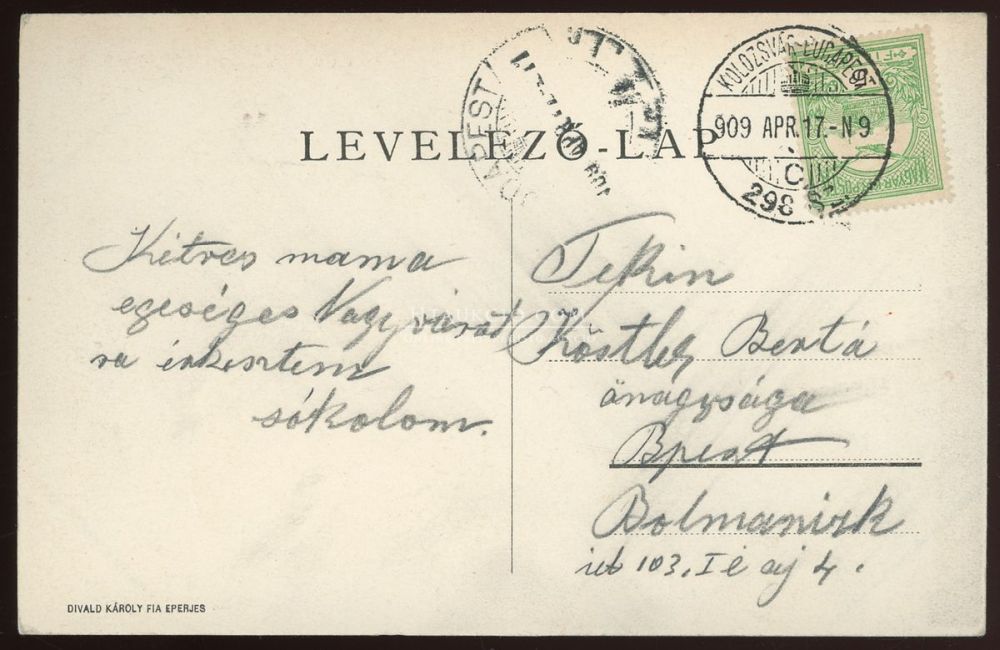 LEVELEZŐ-LAP
BUDAPEST
KOLOZSVÁR-BUDAPEST
909 APR.17.-N9
C
298 SZ
MAGYAR
Kétves mama
egeséges Nagyvárad
ra érkestem
sókolom.
Tekin
Köstler Bertá
önagysága
Bpest
Bolmanirk
ut 103. I é aj 4.
DIVALD KÁROLY FIA EPERJES